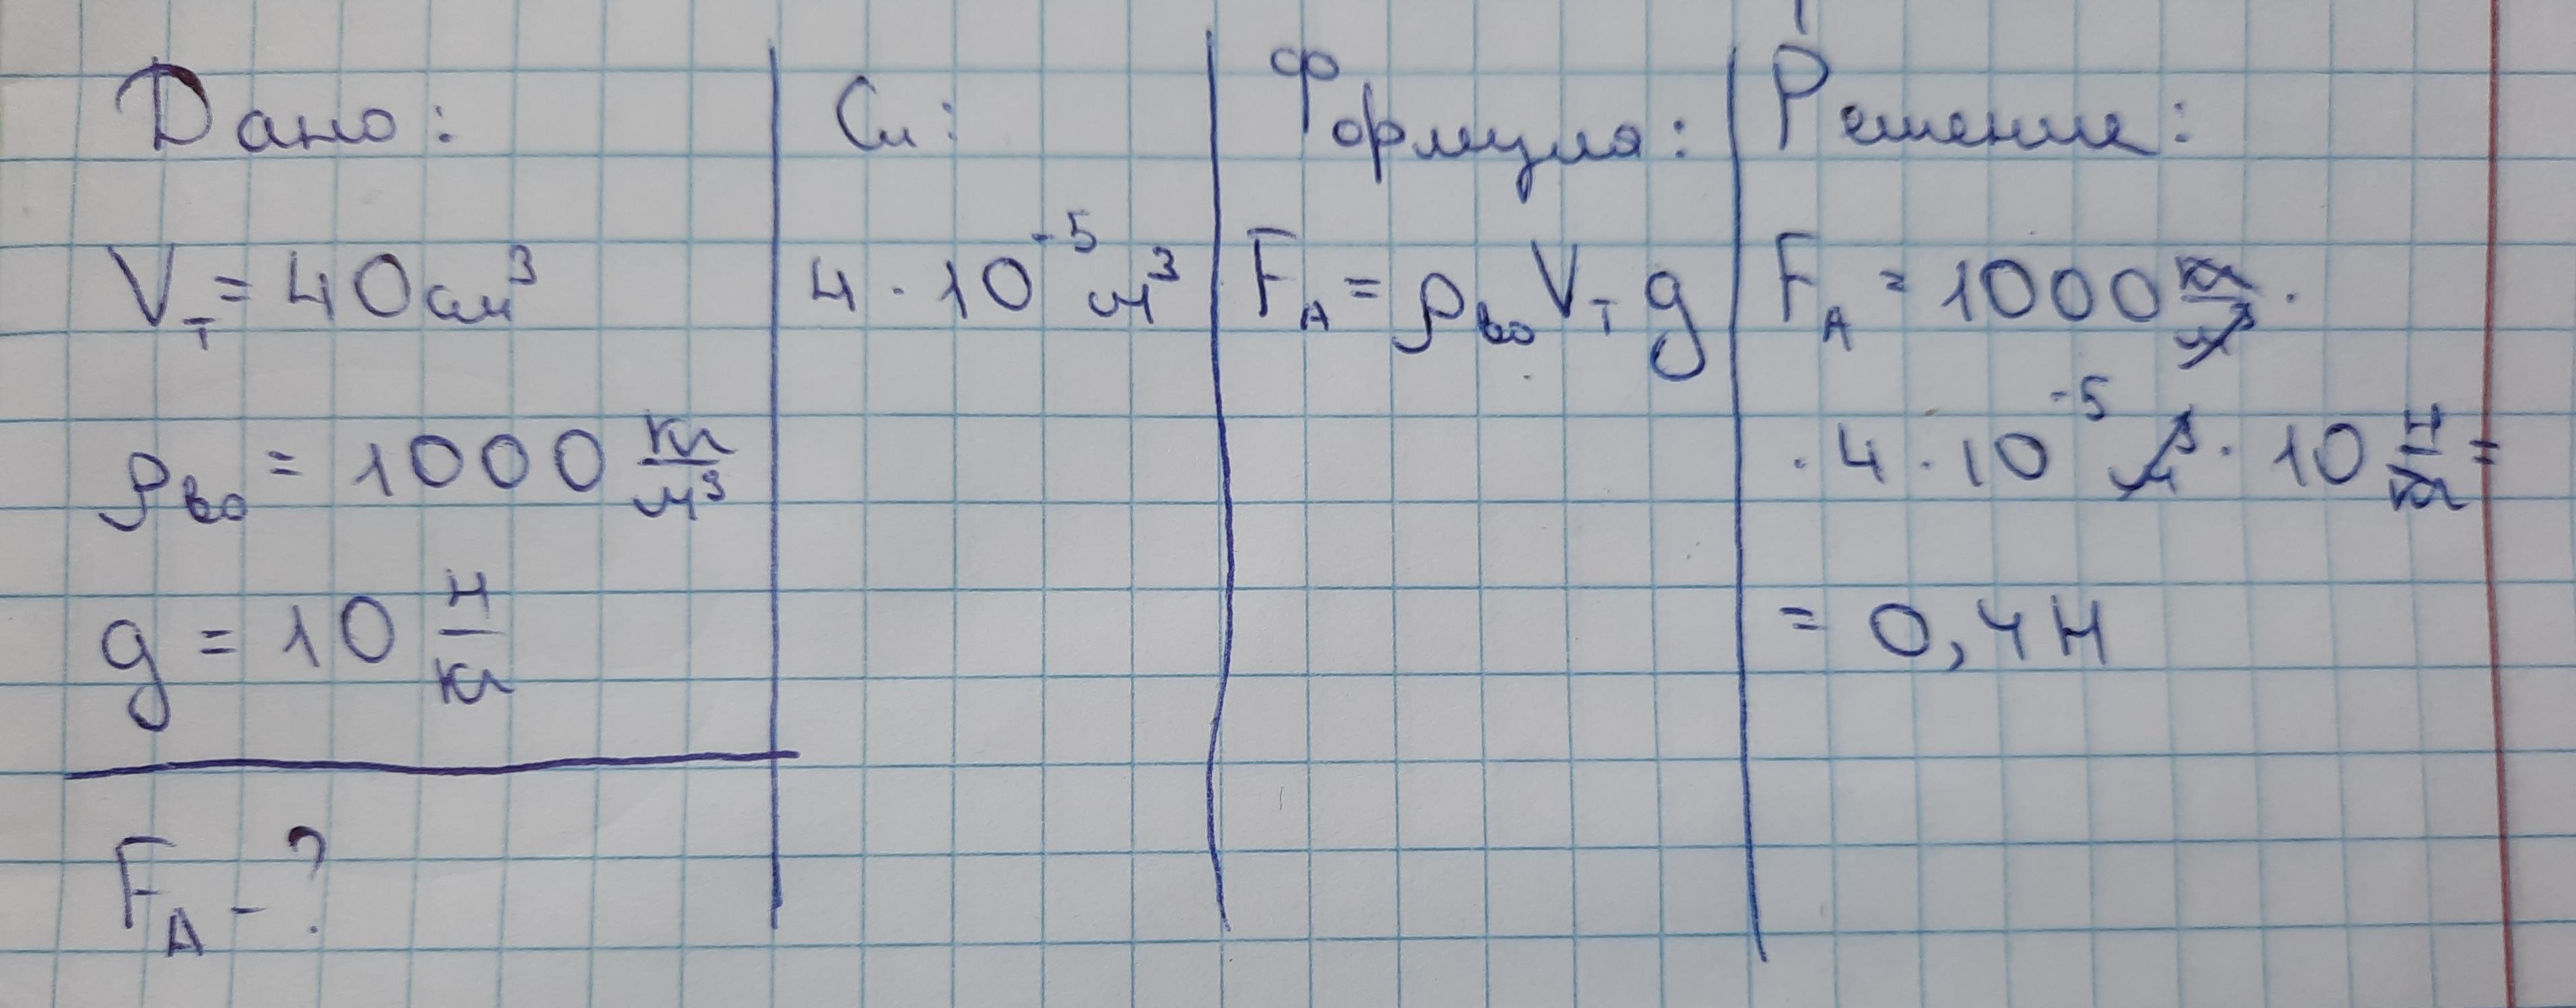 Дано:
V_т = 40 см³
ρ_во = 1000 кг/м³
g = 10 Н/кг
F_А - ?
Си:
4 · 10⁻⁵ м³
Формула:
F_А = ρ_во V_т g
Решение:
F_А = 1000 кг/м³ ·
· 4 · 10⁻⁵ м³ · 10 Н/кг =
= 0,4 Н